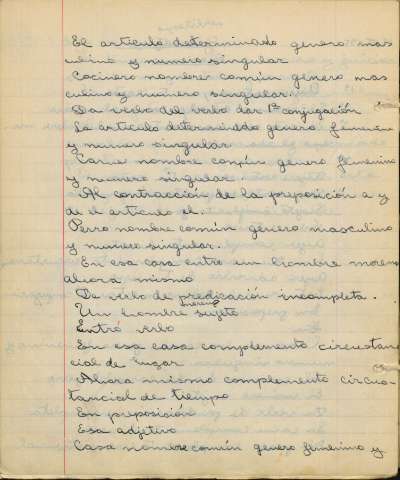 El articulo determinado genero mas
culino y numero singular
Cocinero nombre común genero mas
culino y numero singular.
Da verbo del verbo dar 1ª conjugación
La articulo determinado genero femenino
y numero singular
Carne nombre común genero femenino
y numero singular.
Al contracción de la preposición a y
de el articulo el.
Perro nombre común genero masculino
y numero singular.
En esa casa entro un hombre moreno
ahora mismo
De verbo de predicación incompleta.
Un hombre moreno sujeto
Entró verbo
En esa casa complemento circustan
cial de lugar
Ahora mismo complemento circus
tancial de tiempo
En preposición
Esa adjetivo
Casa nombre común genero femenino y